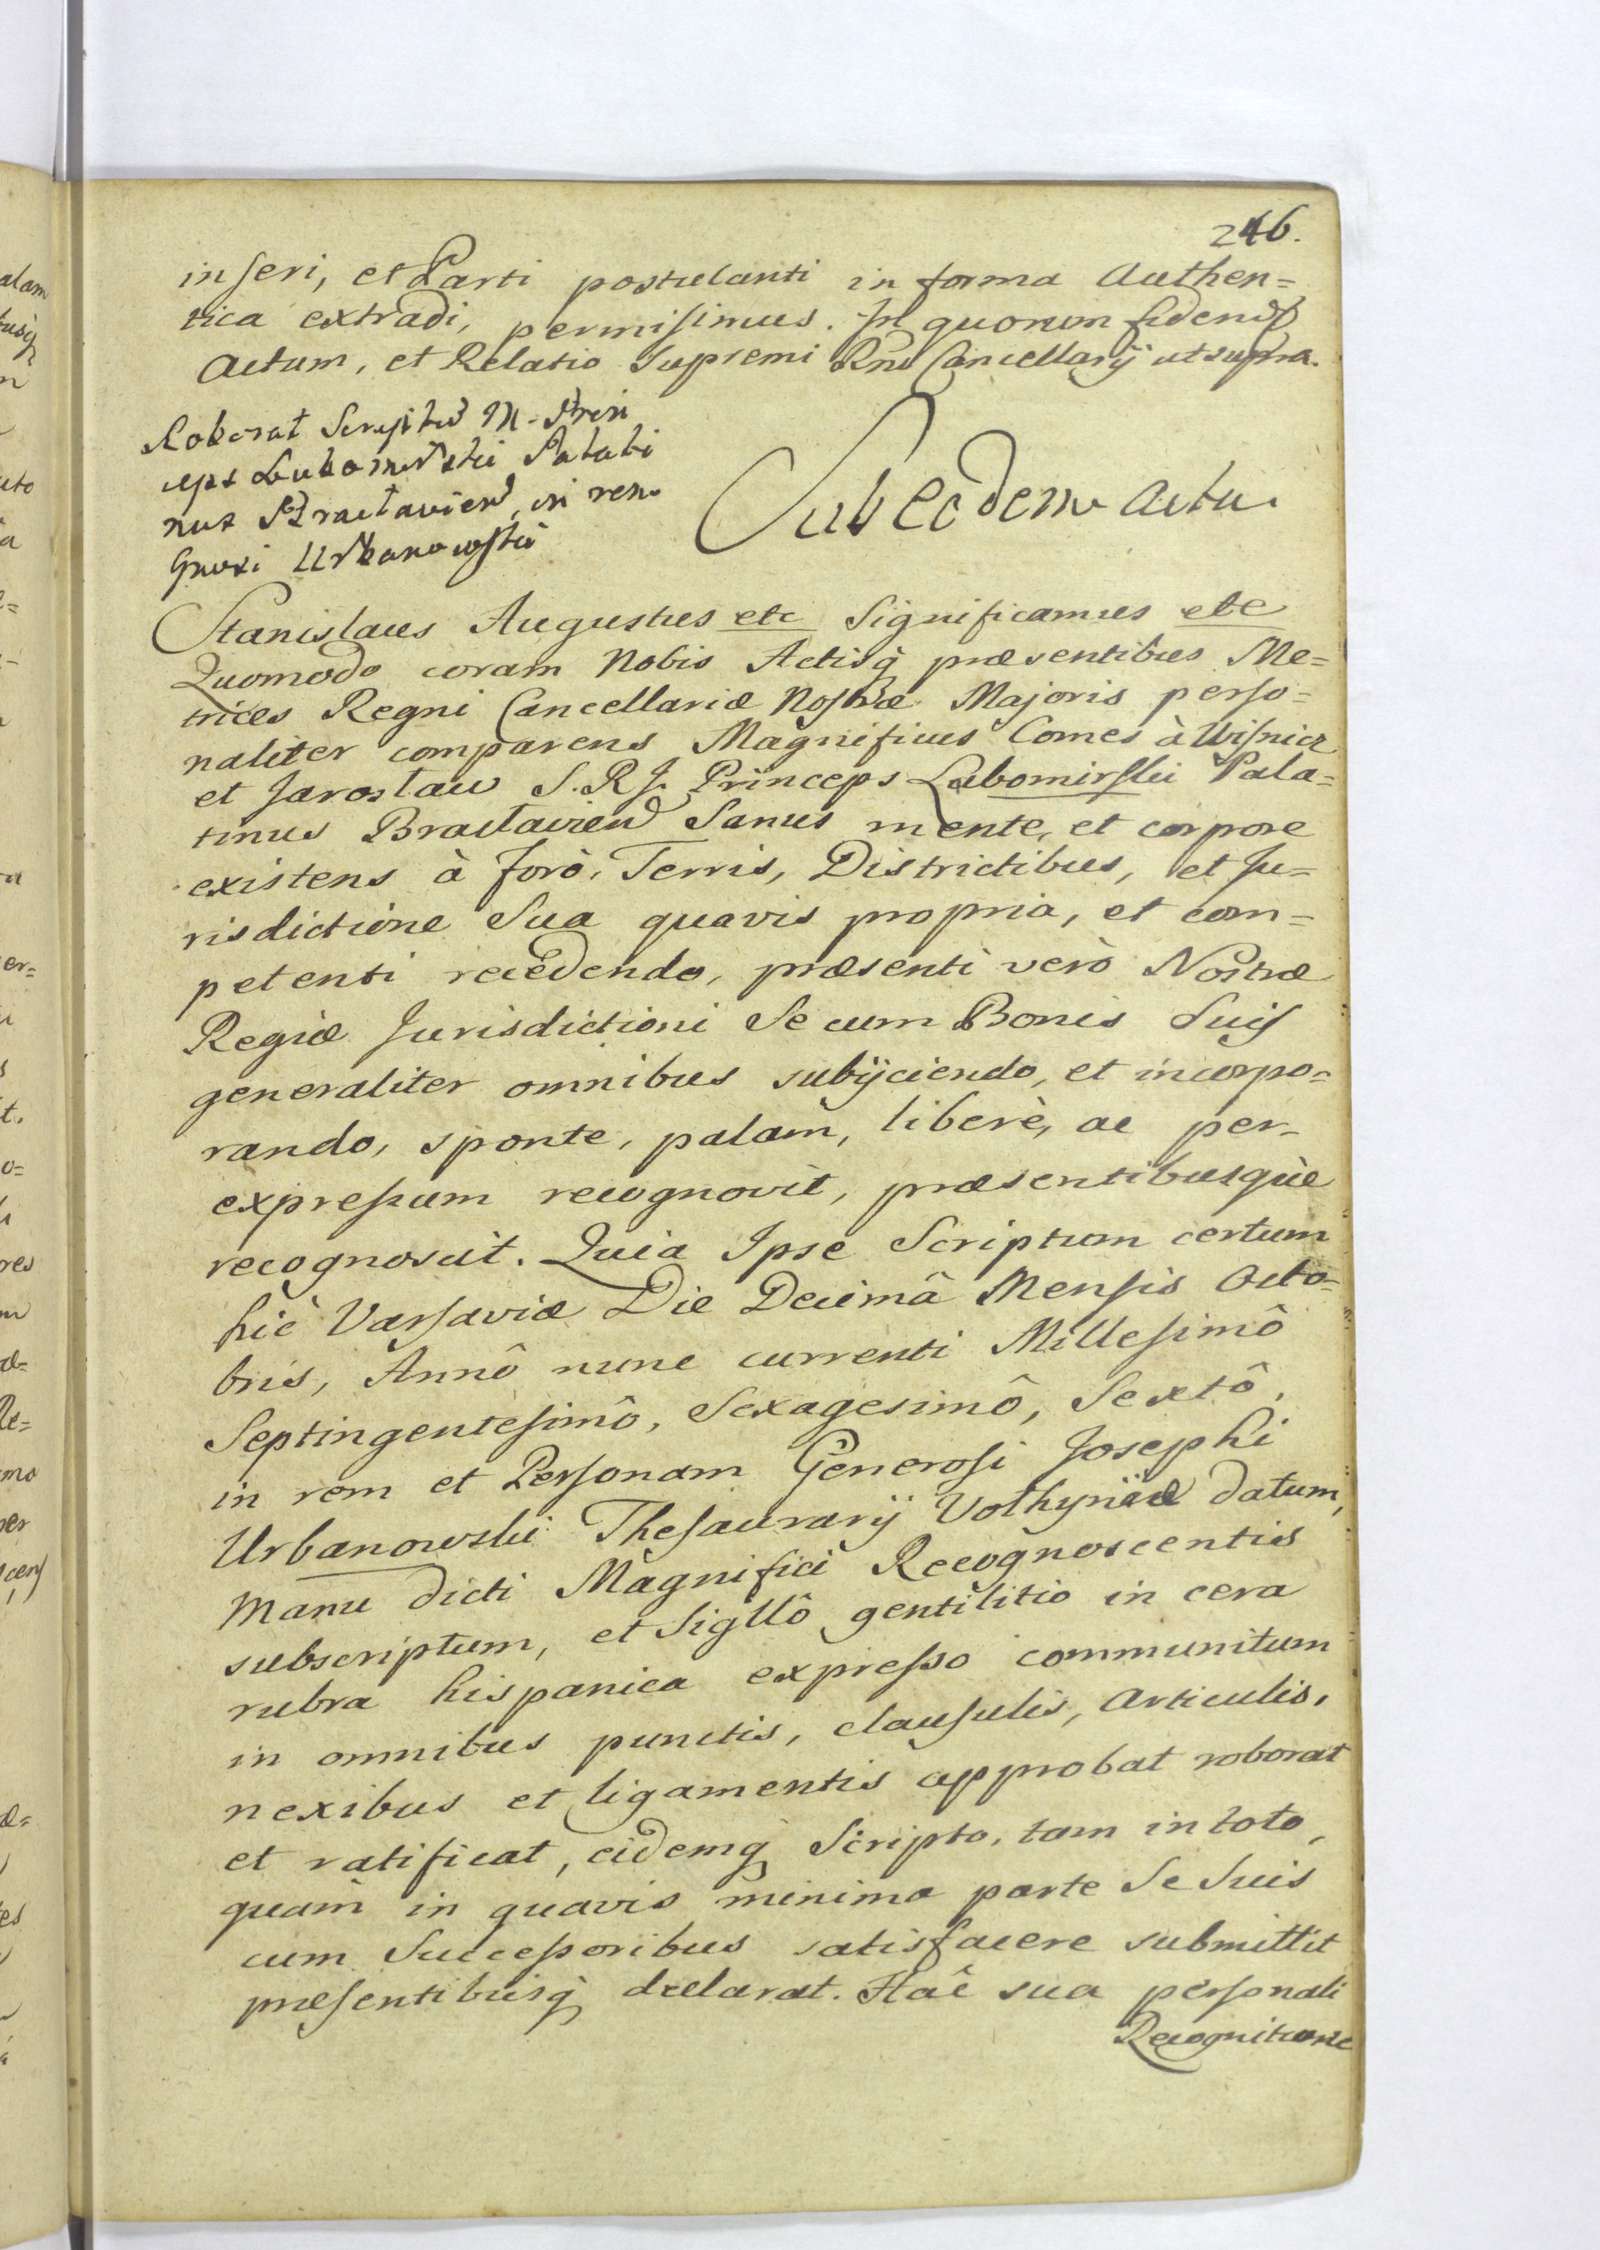 246.
inseri, et Parti postulanti in forma Authen=
tica extradi, permisimus. In quorum fidem
Actum, et Relatio Supremi Rni Cancellarij ut supra.
Roborat Scriptu M. Prin
ceps Lubomirski Palati
nus Braclavien in rem
Gnosi Urbanowski
Sub eodem actu.
Stanislaus Augustus etc Significamus etc
Quomodo coram Nobis Actisq̀ præsentibus Me=
trices Regni Cancellariæ Nostræ Majoris perso=
naliter comparens Magnificus Comes à Wisnicz
et Jaroslaw S.R.J. Princeps Lubomirski Pala=
tinus Braclavien Sanus mente, et corpore
existens à forò, Terris, Districtibus, et Ju=
risdictione Sua quavis propria, et com=
petenti recedendo, præsenti verò Nostræ
Regiæ Jurisdictioni Se cum Bonis Suis
generaliter omnibus subijciendo, et incorpo=
rando, sponte, palam, liberè, ac per=
expressum recognovit, præsentibusque
recognoscit. Quia Ipse Scriptum certum
hic Varsaviæ Die Decimâ Mensis Octo=
bris, Annô nunc currenti Millesimô
Septingentesimô, Sexagesimô, Sextô,
in rem et Personam Generosi Josephi
Urbanowski Thesaurarij Volhyniæ datum,
Manu dicti Magnifici Recognoscentis
subscriptum, et Sigillô gentilitio in cera
rubra hispanica expresso communitum
in omnibus punctis, clausulis, articulis,
nexibus et ligamentis approbat roborat
et ratificat, eidemq̀ Scripto, tam in toto,
quàm in quavis minima parte Se Suis
cum Successoribus satisfacere submittit
præsentibusq̀ declarat. Hac sua personali
Recognitione